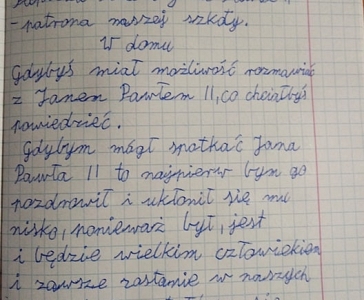 - patrona naszej szkoły.
W domu
Gdybyś miał możliwość rozmawiać
z Janem Pawłem II, co chciałbyś
powiedzieć.
Gdybym mógł spotkać Jana
Pawła II to najpierw bym go
pozdrowił i ukłonił się mu
nisko, ponieważ był, jest
i będzie wielkim człowiekiem
i zawsze zostanie w naszych